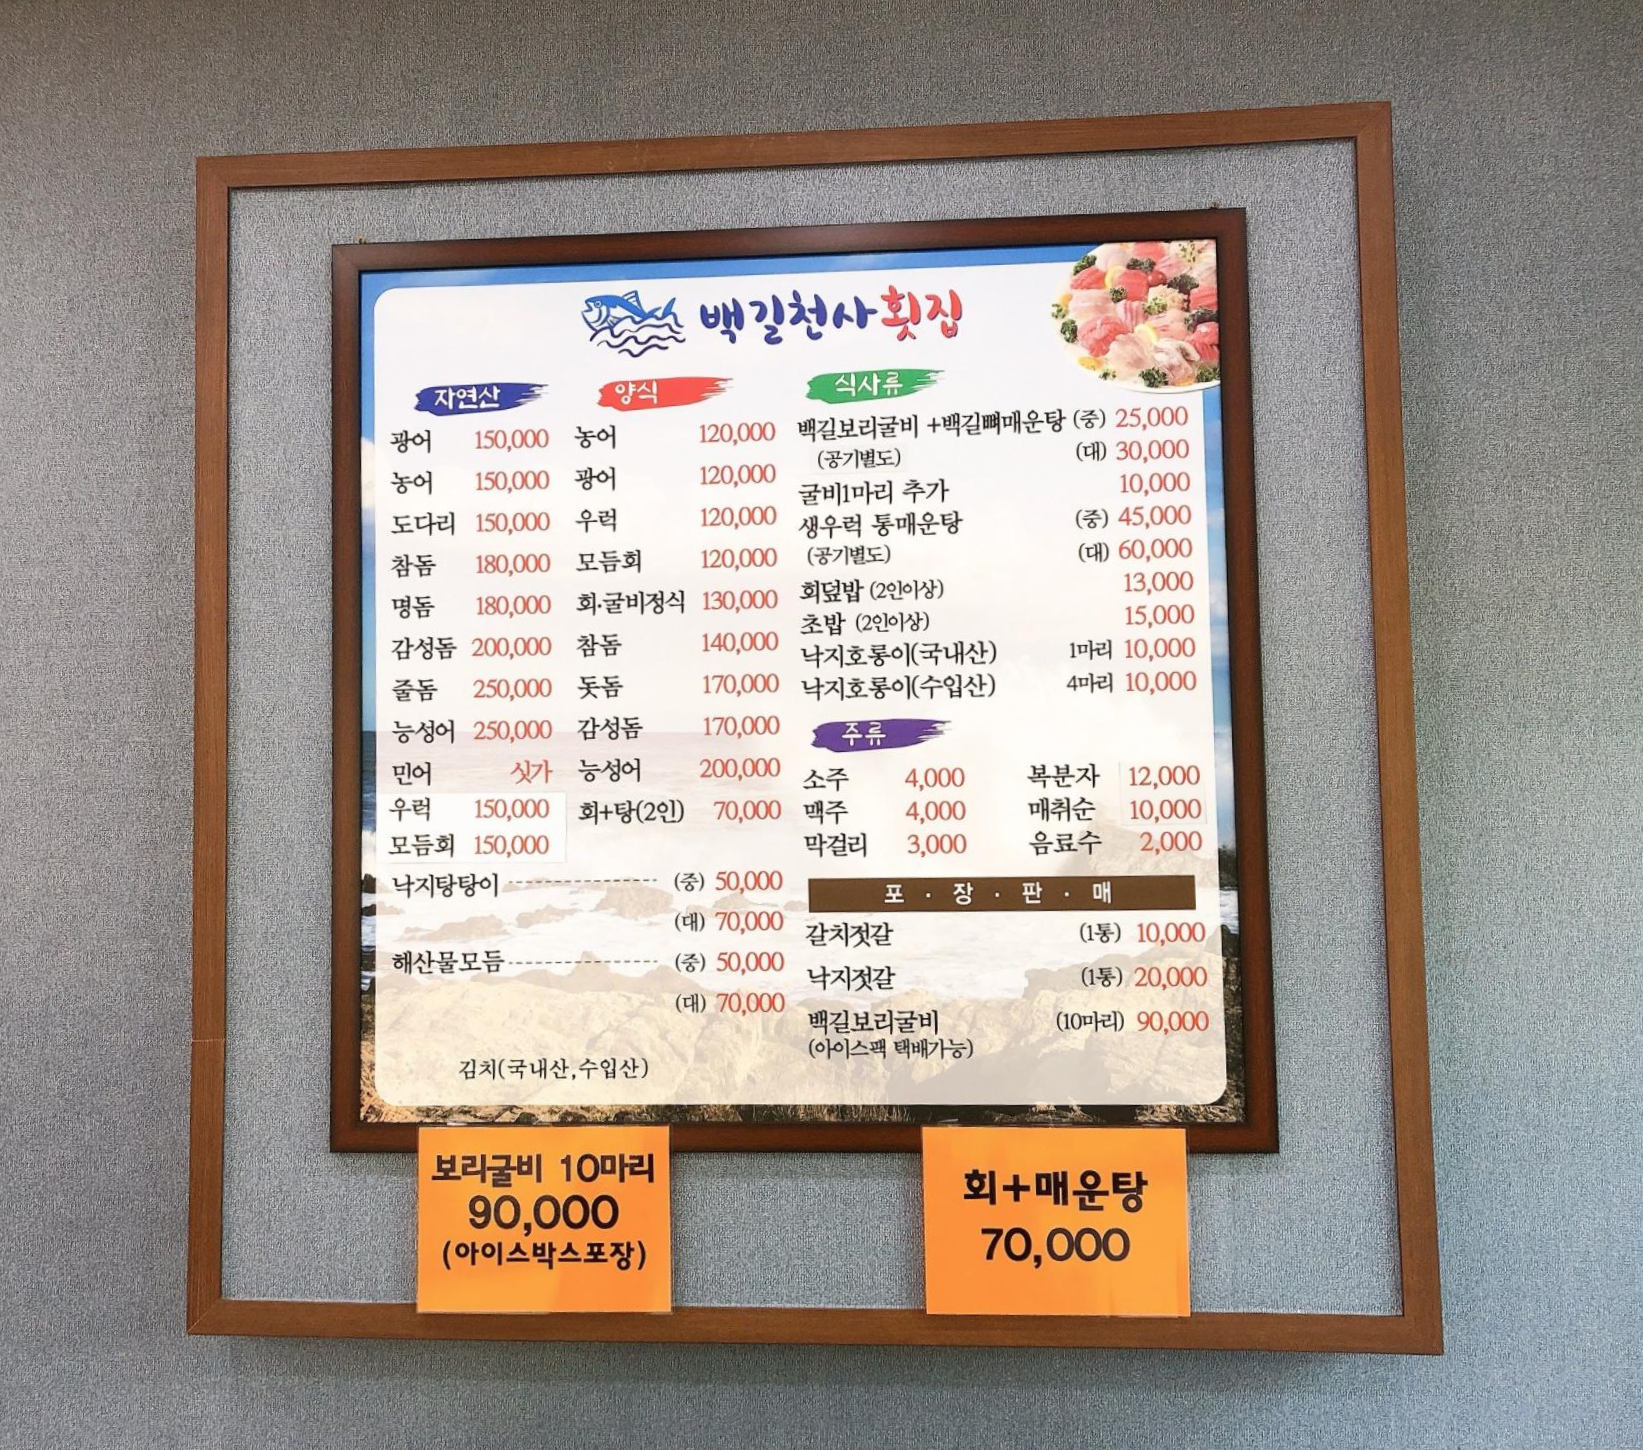 백길천사횟집
자연산
광어 150,000
농어 150,000
도다리 150,000
참돔 180,000
명돔 180,000
감성돔 200,000
줄돔 250,000
능성어 250,000
민어 싯가
우럭 150,000
모듬회 150,000
양식
농어 120,000
광어 120,000
우럭 120,000
모듬회 120,000
회·굴비정식 130,000
참돔 140,000
돗돔 170,000
감성돔 170,000
능성어 200,000
회+탕(2인) 70,000
낙지탕탕이 (중) 50,000
(대) 70,000
해산물모듬 (중) 50,000
(대) 70,000
김치(국내산,수입산)
식사류
백길보리굴비 +백길뼈매운탕 (중) 25,000
(공기별도) (대) 30,000
굴비1마리 추가 10,000
생우럭 통매운탕 (중) 45,000
(공기별도) (대) 60,000
회덮밥 (2인이상) 13,000
초밥 (2인이상) 15,000
낙지호롱이(국내산) 1마리 10,000
낙지호롱이(수입산) 4마리 10,000
주류
소주 4,000 복분자 12,000
맥주 4,000 매취순 10,000
막걸리 3,000 음료수 2,000
포·장·판·매
갈치젓갈 (1통) 10,000
낙지젓갈 (1통) 20,000
백길보리굴비 (10마리) 90,000
(아이스팩 택배가능)
보리굴비 10마리
90,000
(아이스박스포장)
회+매운탕
70,000